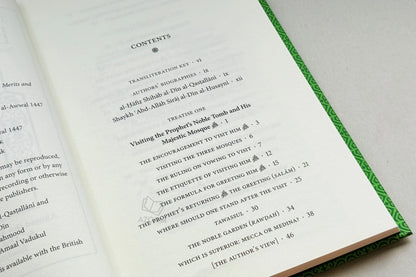 Merits and
al-Awwal 1447
1447
sk
may be reproduced,
any form or by any
recording or otherwise
he publishers.
al-Qasṭallānī and
hmood
Amaal Vadakul
is available with the British
CONTENTS
TRANSLITERATION KEY · vi
AUTHORS' BIOGRAPHIES · ix
al-Ḥāfiẓ Shihāb al-Dīn al-Qasṭallānī · ix
Shaykh ʿAbd-Allāh Sirāj al-Dīn al-Ḥusaynī · xii
TREATISE ONE
Visiting the Prophet's Noble Tomb and His
Majestic Mosque ﷺ · 1
THE ENCOURAGEMENT TO VISIT HIM ﷺ · 3
VISITING THE THREE MOSQUES · 6
THE RULING ON VOWING TO VISIT · 7
THE ETIQUETTE OF VISITING HIM ﷺ · 12
THE FORMULA FOR GREETING HIM ﷺ · 15
THE PROPHET'S RETURNING ﷺ THE GREETING (SALĀM) · 21
WHERE SHOULD ONE STAND AFTER THE VISIT · 25
TAWASSUL · 30
THE NOBLE GARDEN (RAWḌAH) · 34
WHICH IS SUPERIOR: MECCA OR MEDINA? · 38
[THE AUTHOR'S VIEW] · 46